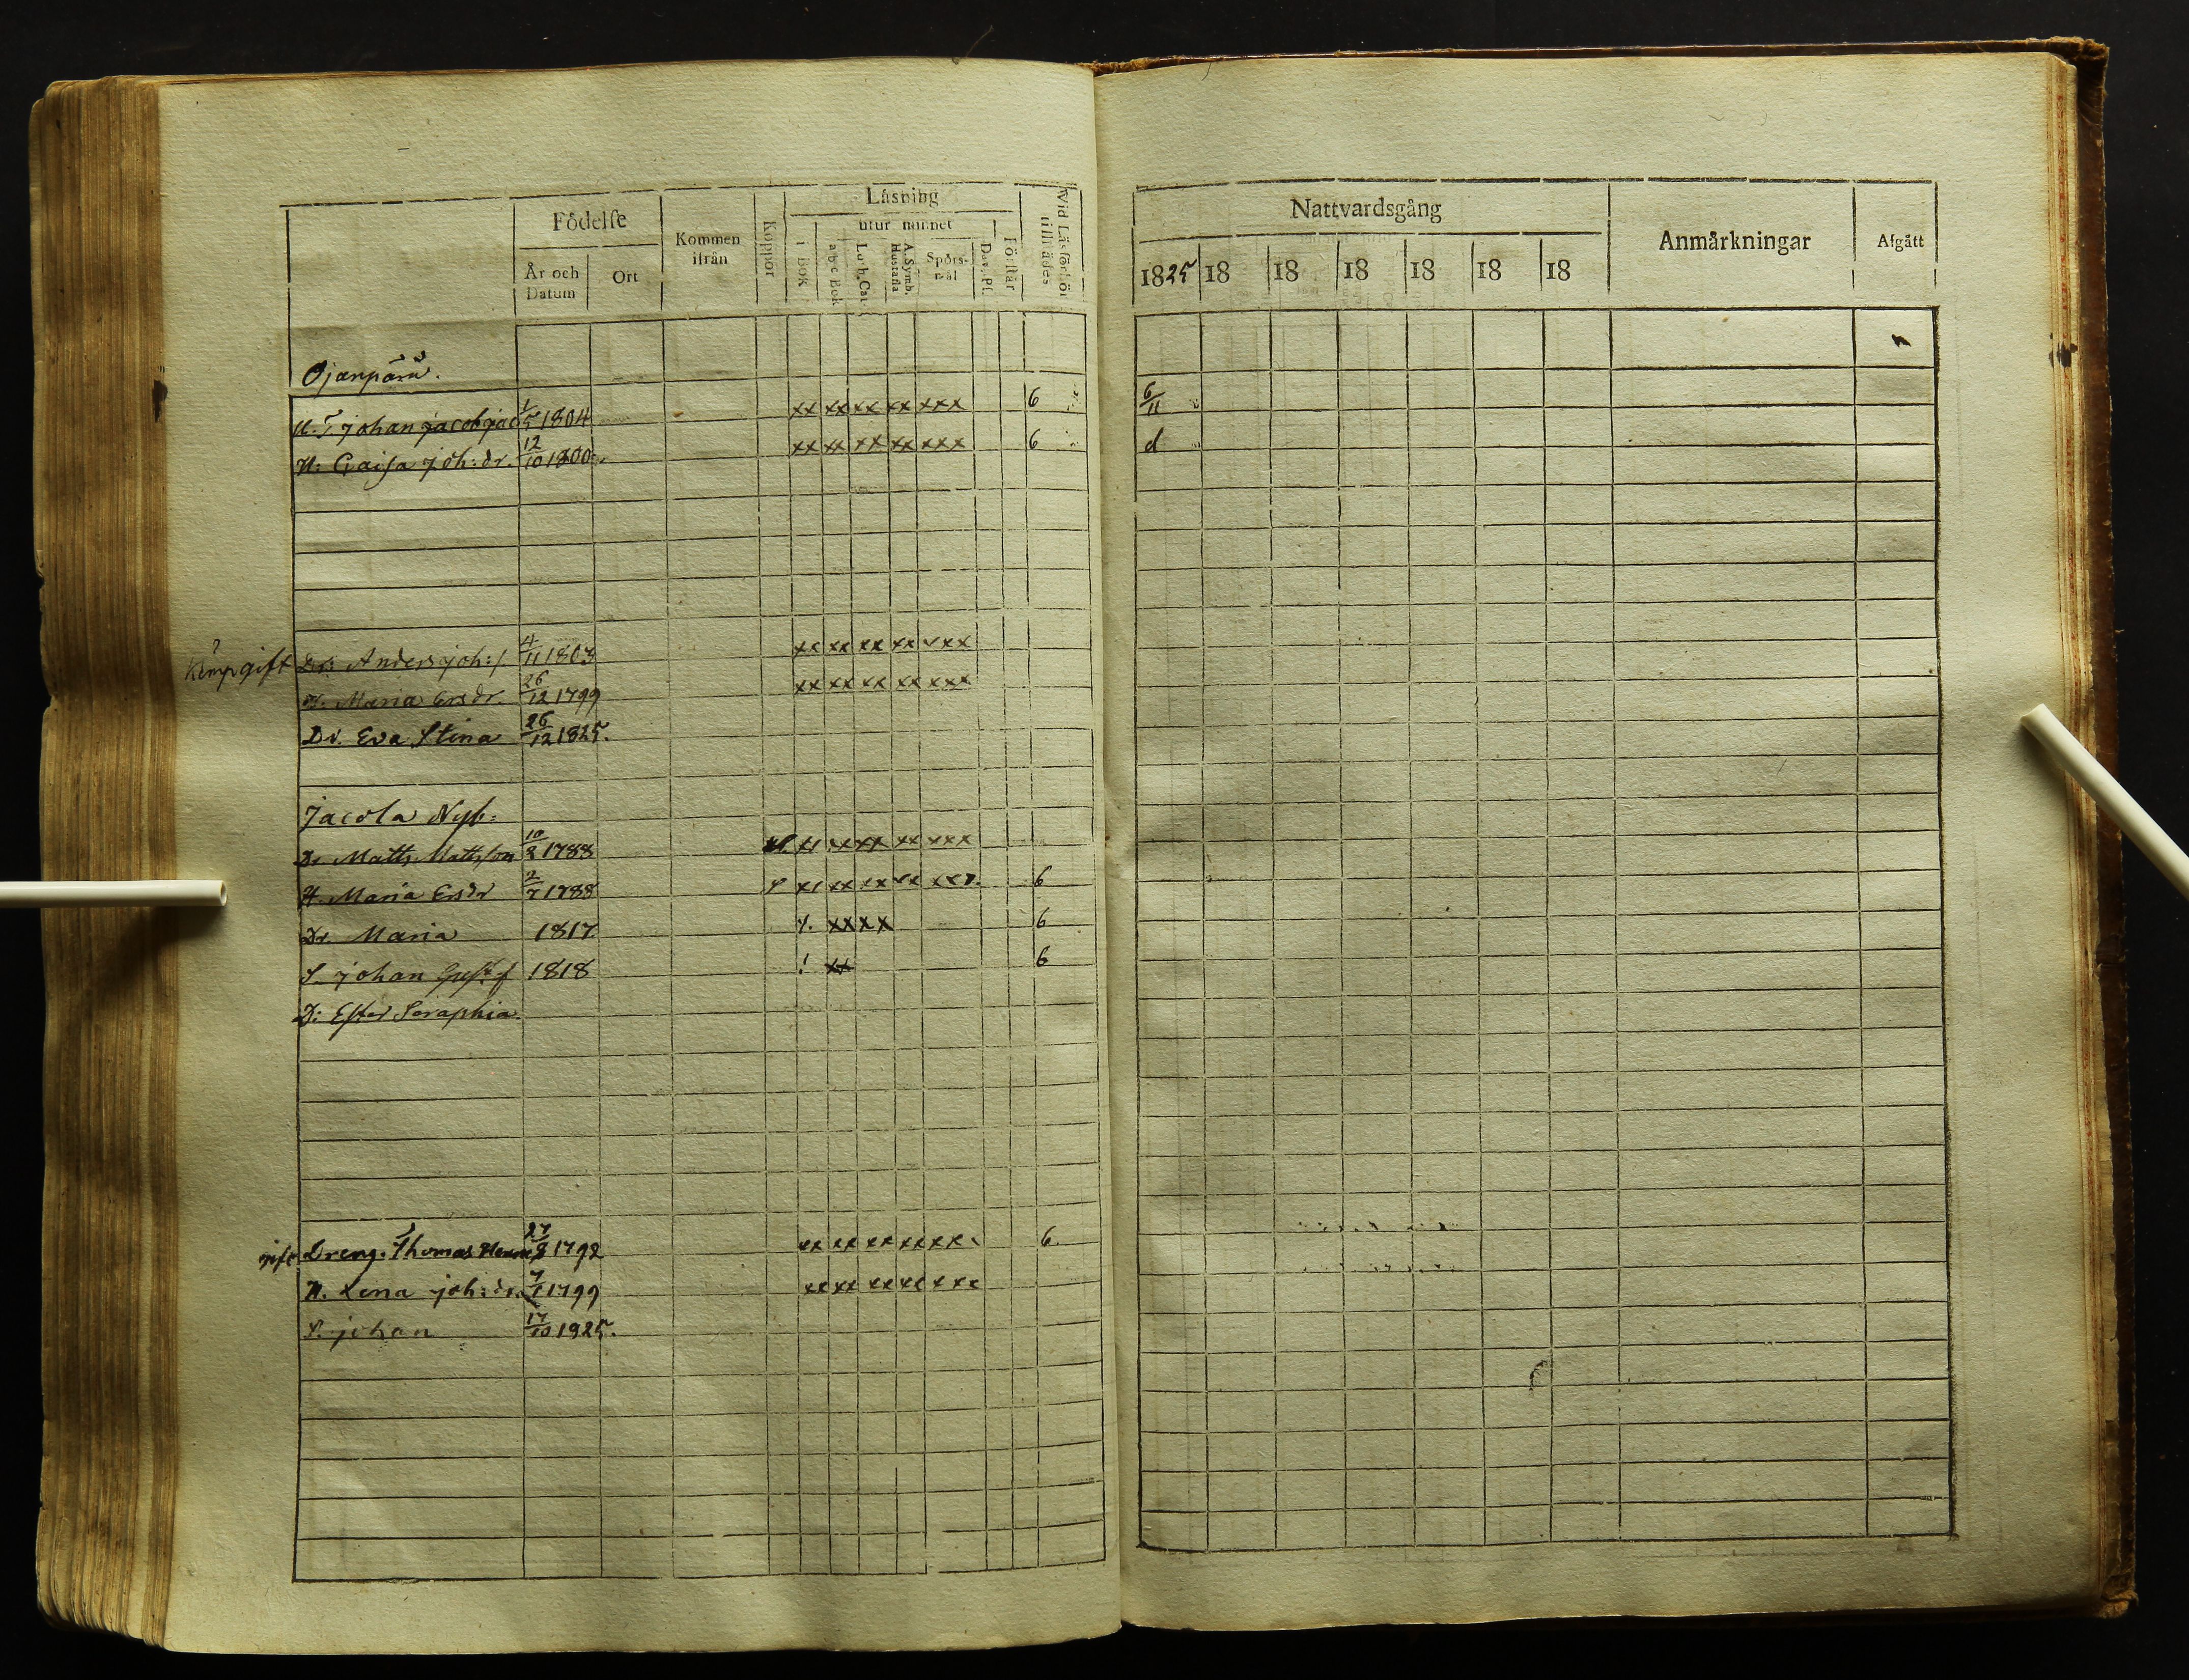 Födelse
Kommen ifrån
Koppor
Läsning
utur minnet
i Bok
abc Bok
Luth. Cat.
A. Symb. Hustafla
Spörsmål
Dav. Ps.
Förstår
Vid Läsförhör tillstädes
År och Datum
Ort
Nattvardsgång
Anmärkningar
Afgått
1825 18 18 18 18 18 18
Ojanpärä.
johan 1/5 1804 xx xx xx xx xxx 6 6/11
H: Caisa joh: dr. 12/10 1800 xx xx xx xx xxx 6 d
gift Anders joh: 4/11 1803 xx xx xx xx xxx
H. Maria Ersdr. 26/12 1799 xx xx xx xx xxx
Dr. Eva Stina 26/12 1825.
Jacola Nyb:
Matts Mattsson 10/2 1788 xx xx xx xxx
H. Maria Ersdr 2/7 1788 xx xx 6
Dr. Maria 1817 xx xx 6
S. johan 1818 xx 6
D: Ester Seraphia.
gift Dreng. Thomas 27/8 1792 xx xx xx xx 6
H. Lena joh: dr. 1799 xx xx xx xx xxx
S. johan 17/10 1825.